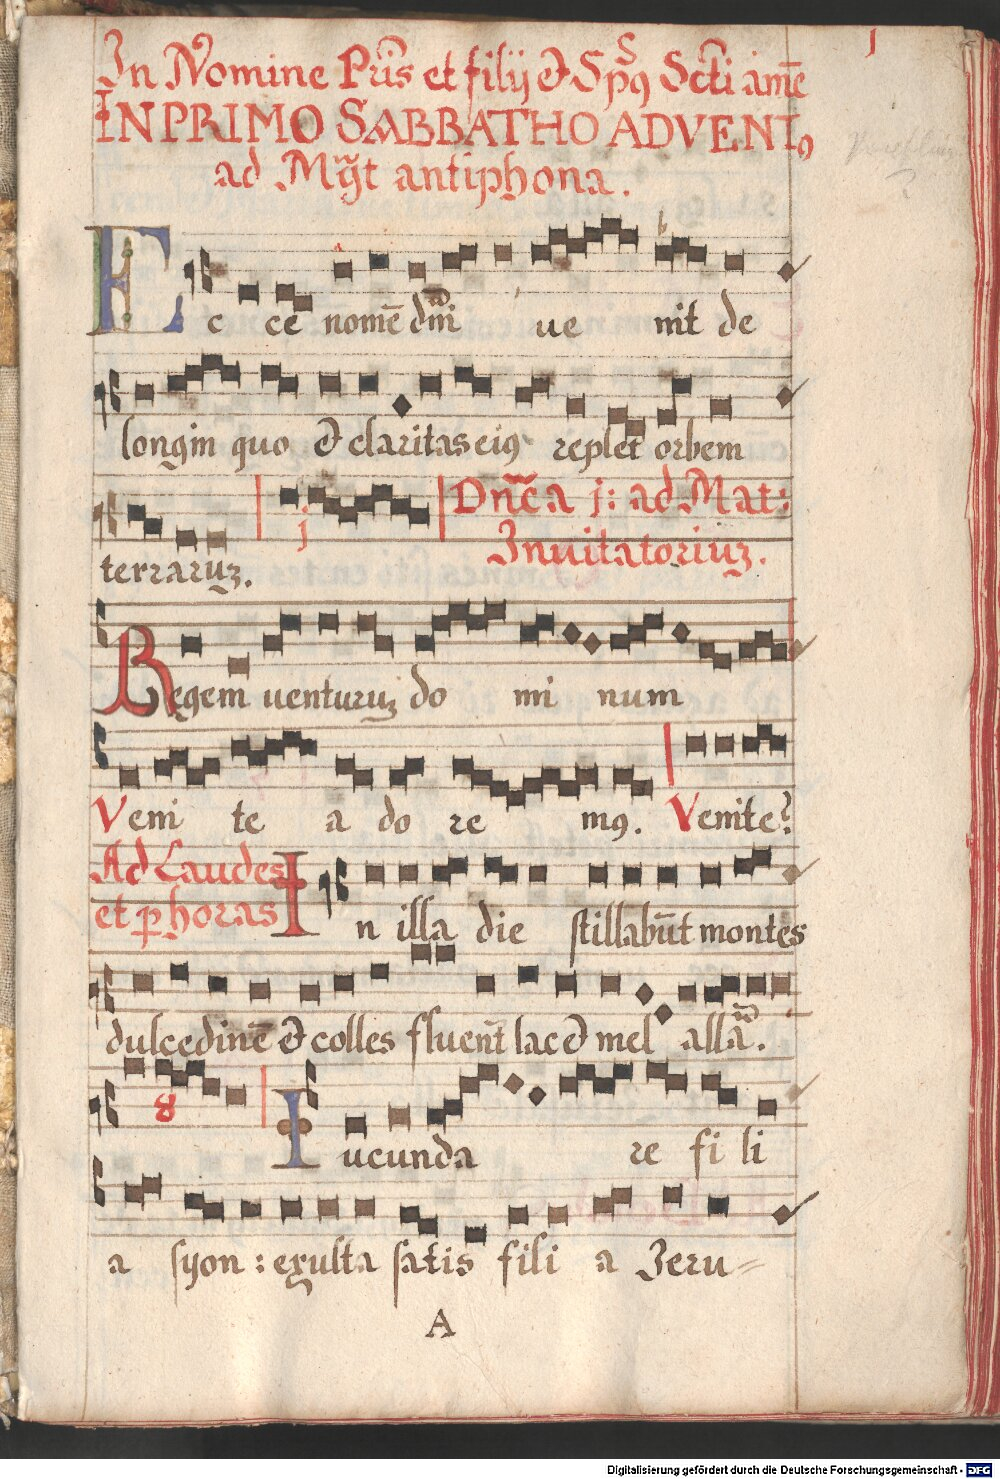 1
In Nomine Pr̃is et filij et Sp̃s Sc̃ti amẽ
IN PRIMO SABBATHO ADVENTꝰ
ad Mg̃t antiphona.
Ecce nomẽ dñi uenit de
longinquo et claritas eiꝰ replet orbem
j Dñca j: ad Mat:
terraruꝫ. Inuitatoriuꝫ.
Regem uenturuꝫ dominum
Venite adoremꝰ. Venite?
Ad Laudes
et ꝑ horas In illa die stillabũt montes
dulcedinẽ et colles fluent̃ lac et mel allã.
8
Iucundare fili
a syon: exulta satis filia Ieru=
A
Digitalisierung gefördert durch die Deutsche Forschungsgemeinschaft - DFG